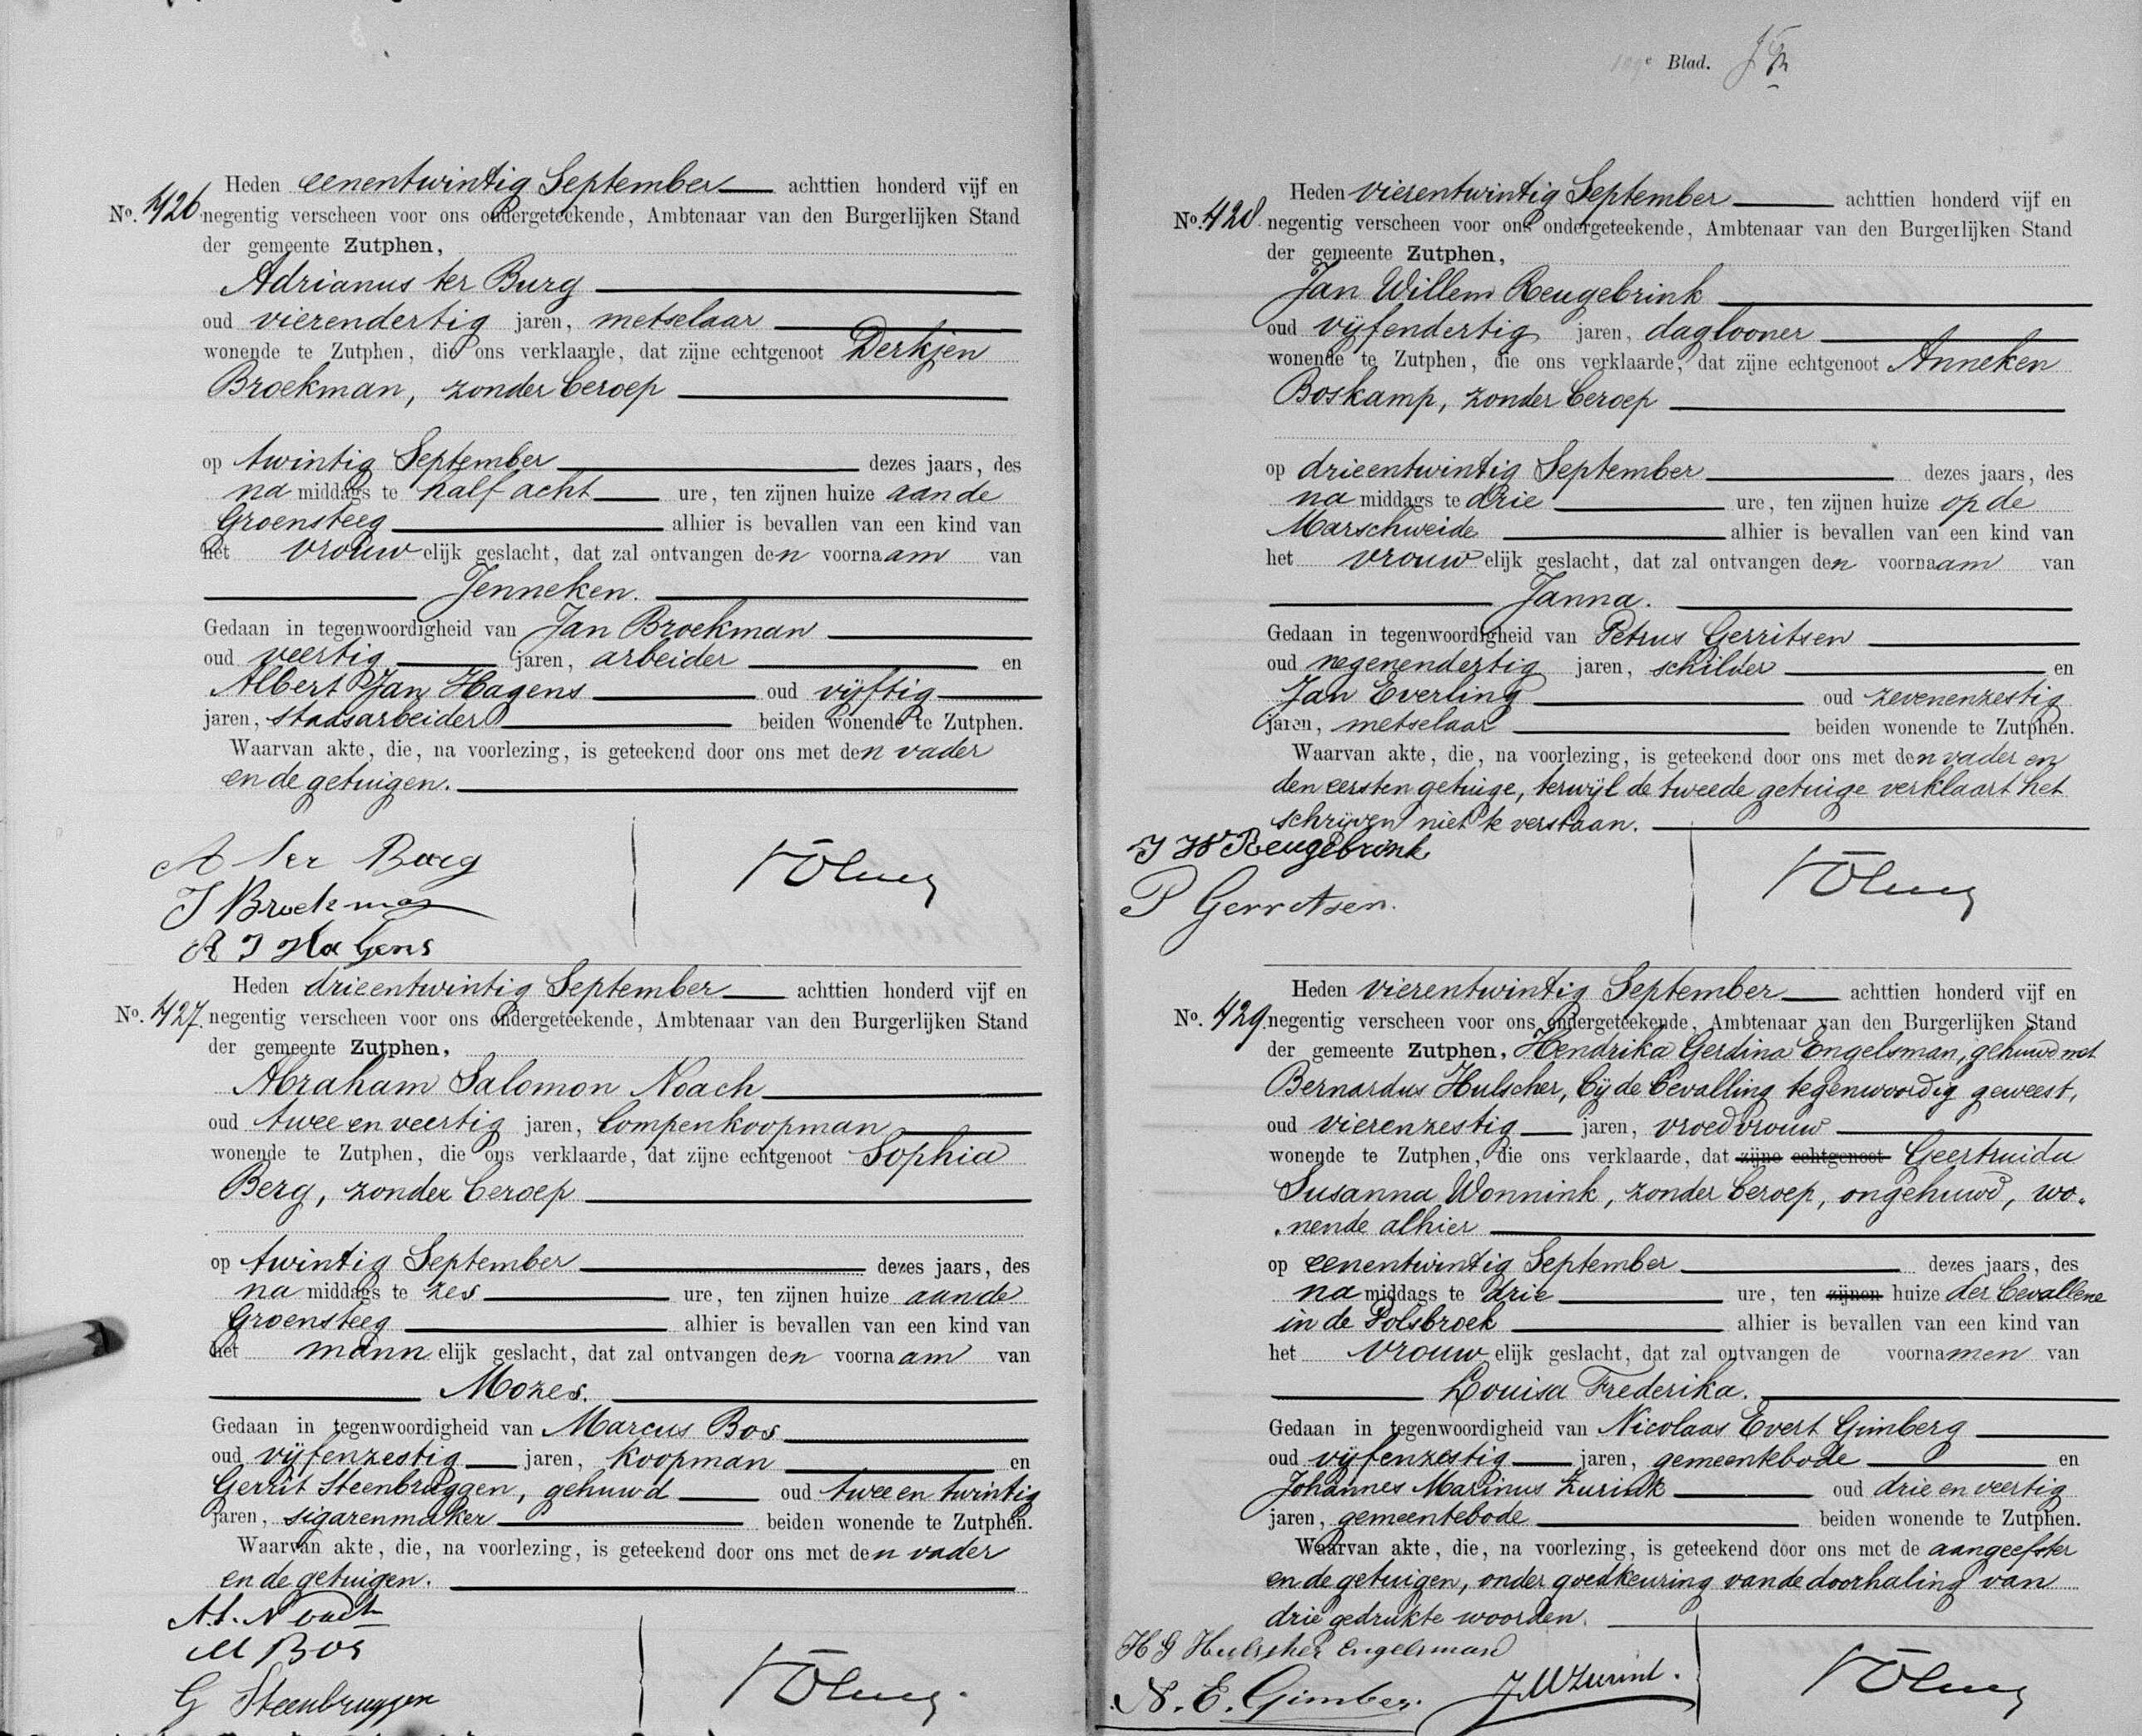 Heden eenentwintig September achttien honderd vijf en
No. 426. negentig verscheen voor ons ondergeteekende, Ambtenaar van den Burgerlijken Stand
der gemeente Zutphen,
Adrianus ter Burg
oud vierendertig jaren, metselaar
wonende te Zutphen, die ons verklaarde, dat zijne echtgenoot Derkjen
Broekman, zonder beroep
op twintig September dezes jaars, des
na middags te half acht ure, ten zijnen huize aan de
Groensteeg alhier is bevallen van een kind van
het vrouwelijk geslacht, dat zal ontvangen den voornaam van
Jenneken.
Gedaan in tegenwoordigheid van Jan Broekman
oud veertig jaren, arbeider en
Albert Jan Hagens oud vijftig
jaren, stadsarbeider beiden wonende te Zutphen.
Waarvan akte, die, na voorlezing, is geteekend door ons met den vader
en de getuigen.
A ter Burg
J Broekman
A J Hagens
Heden drieentwintig September achttien honderd vijf en
No. 427. negentig verscheen voor ons ondergeteekende, Ambtenaar van den Burgerlijken Stand
der gemeente Zutphen,
Abraham Salomon Noach
oud twee en veertig jaren, lompenkoopman
wonende te Zutphen, die ons verklaarde, dat zijne echtgenoot Sophia
Berg, zonder beroep
op twintig September dezes jaars, des
na middags te zes ure, ten zijnen huize aan de
Groensteeg alhier is bevallen van een kind van
het mannelijk geslacht, dat zal ontvangen den voornaam van
Mozes.
Gedaan in tegenwoordigheid van Marcus Bos
oud vijfenzestig jaren, koopman en
Gerrit Steenbruggen, gehuwd oud twee en twintig
jaren, sigarenmaker beiden wonende te Zutphen.
Waarvan akte, die, na voorlezing, is geteekend door ons met den vader
en de getuigen.
A. S. Noach
M Bos
G Steenbruggen
Blad.
Heden vierentwintig September achttien honderd vijf en
No. 428. negentig verscheen voor ons ondergeteekende, Ambtenaar van den Burgerlijken Stand
der gemeente Zutphen,
Jan Willem Reugebrink
oud vijfendertig jaren, daglooner
wonende te Zutphen, die ons verklaarde, dat zijne echtgenoot Anneken
Boskamp, zonder beroep
op drieentwintig September dezes jaars, des
na middags te drie ure, ten zijnen huize op de
Marschweide alhier is bevallen van een kind van
het vrouwelijk geslacht, dat zal ontvangen den voornaam van
Janna.
Gedaan in tegenwoordigheid van Petrus Gerritsen
oud negenendertig jaren, schilder en
Jan Everling oud zevenenzestig
jaren, metselaar beiden wonende te Zutphen.
Waarvan akte, die, na voorlezing, is geteekend door ons met den vader en
den eersten getuige, terwijl de tweede getuige verklaart het
schrijven niet te verstaan.
J W Reugebrink
P Gerritsen.
Heden vierentwintig September achttien honderd vijf en
No. 429. negentig verscheen voor ons ondergeteekende, Ambtenaar van den Burgerlijken Stand
der gemeente Zutphen, Hendrika Gerdina Engelsman, gehuwd met
Bernardus Hulscher, bij de bevalling tegenwoordig geweest,
oud vierenzestig jaren, vroedvrouw
wonende te Zutphen, die ons verklaarde, dat zijne echtgenoot Geertruida
Susanna Wonnink, zonder beroep, ongehuwd, wo-
nende alhier
op eenentwintig September dezes jaars, des
na middags te drie ure, ten zijnen huize der bevallene
in de Polsbroek alhier is bevallen van een kind van
het vrouwelijk geslacht, dat zal ontvangen de voornamen van
Louisa Frederika.
Gedaan in tegenwoordigheid van Nicolaas Evert Gimberg
oud vijfenzestig jaren, gemeentebode en
Johannes Marinus Zurink oud drie en veertig
jaren, gemeentebode beiden wonende te Zutphen.
Waarvan akte, die, na voorlezing, is geteekend door ons met de aangeefster
en de getuigen, onder goedkeuring van de doorhaling van
drie gedrukte woorden.
H G Hulscher Engelsman
N. E. Gimberg. J M Zurink.